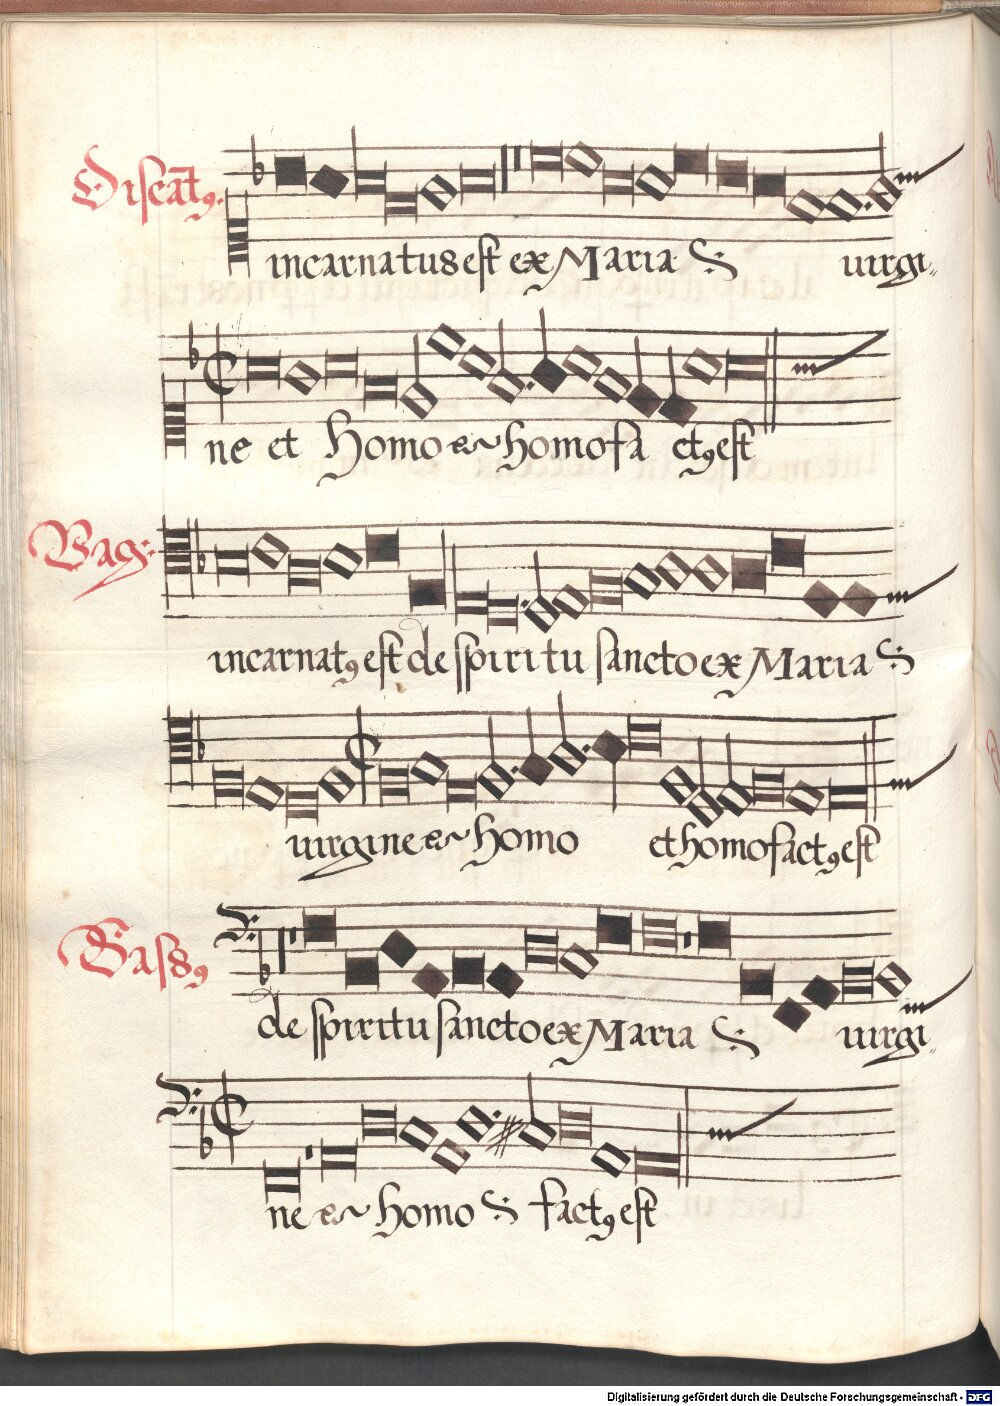 Discat9.
incarnatus est ex Maria :S: uirgi„
ne et Homo et homo fa ct9 est
Vag:
incarnat9 est de spiritu sancto ex Maria :S:
uirgine et homo et homo fact9 est
Bass9
de spiritu sancto ex Maria :S: uirgi„
ne et homo :S: fact9 est
Digitalisierung gefördert durch die Deutsche Forschungsgemeinschaft - DFG